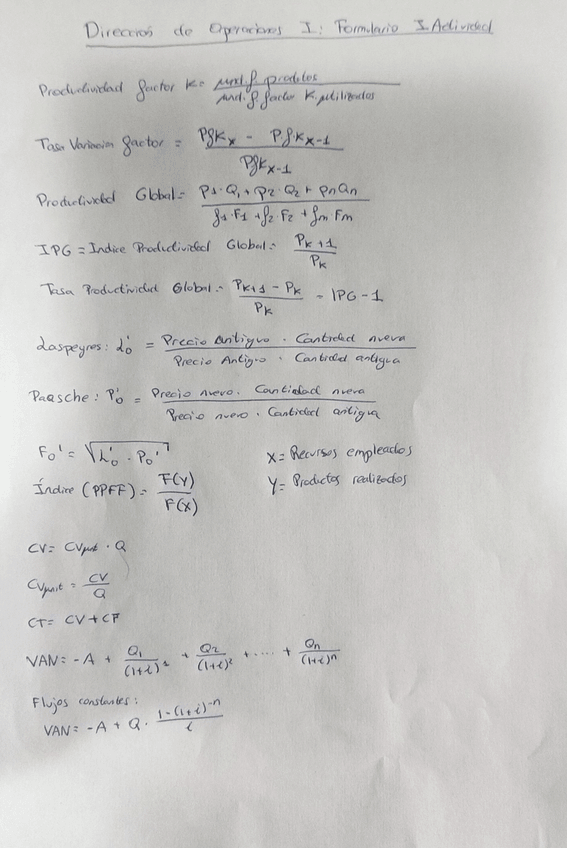 Dirección de Operaciones I: Formulario I Actividad
Productividad factor K = und. f. produtos / und. f. factor K utilizados
Tasa Variación factor = PfKx - P.f.Kx-1 / PfKx-1
Productividad Global = P1·Q1 + P2·Q2 + PnQn / f1·F1 + f2·F2 + fm·Fm
IPG = Indice Productividad Global = PK+1 / PK
Tasa Productividad Global = PK+1 - PK / PK = IPG - 1
Laspeyres: L'o = Precio Antiguo · Cantidad nueva / Precio Antiguo · Cantidad antigua
Paasche: P'o = Precio nuevo · Cantidad nueva / Precio nuevo · Cantidad antigua
Fo' = √L'o · Po'
X = Recursos empleados
Índice (PPFF) = F(Y) / F(X)
Y = Productos realizados
CV = CVunit · Q
CVunit = CV / Q
CT = CV + CF
VAN = -A + Q1 / (1+i)^1 + Q2 / (1+i)^2 + .... + Qn / (1+i)^n
Flujos constantes:
VAN = -A + Q · 1-(1+i)^-n / i